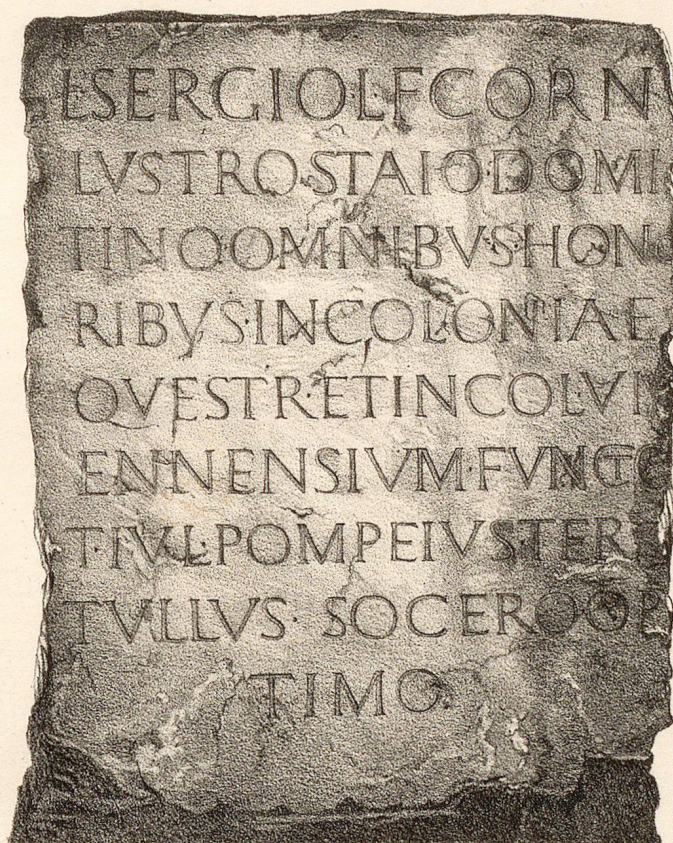 L·SERGIO·L·F·CORN
LVSTROSTAIO·DOMI
TINOOMNIBVS·HONO
RIBVS·IN·COLONIAE
QVESTR·ETINCOLVI
ENNENSIVM·FVNCTO
T·IVL·POMPEIVS·TER
TVLLVS· SOCEROOP
TIMO